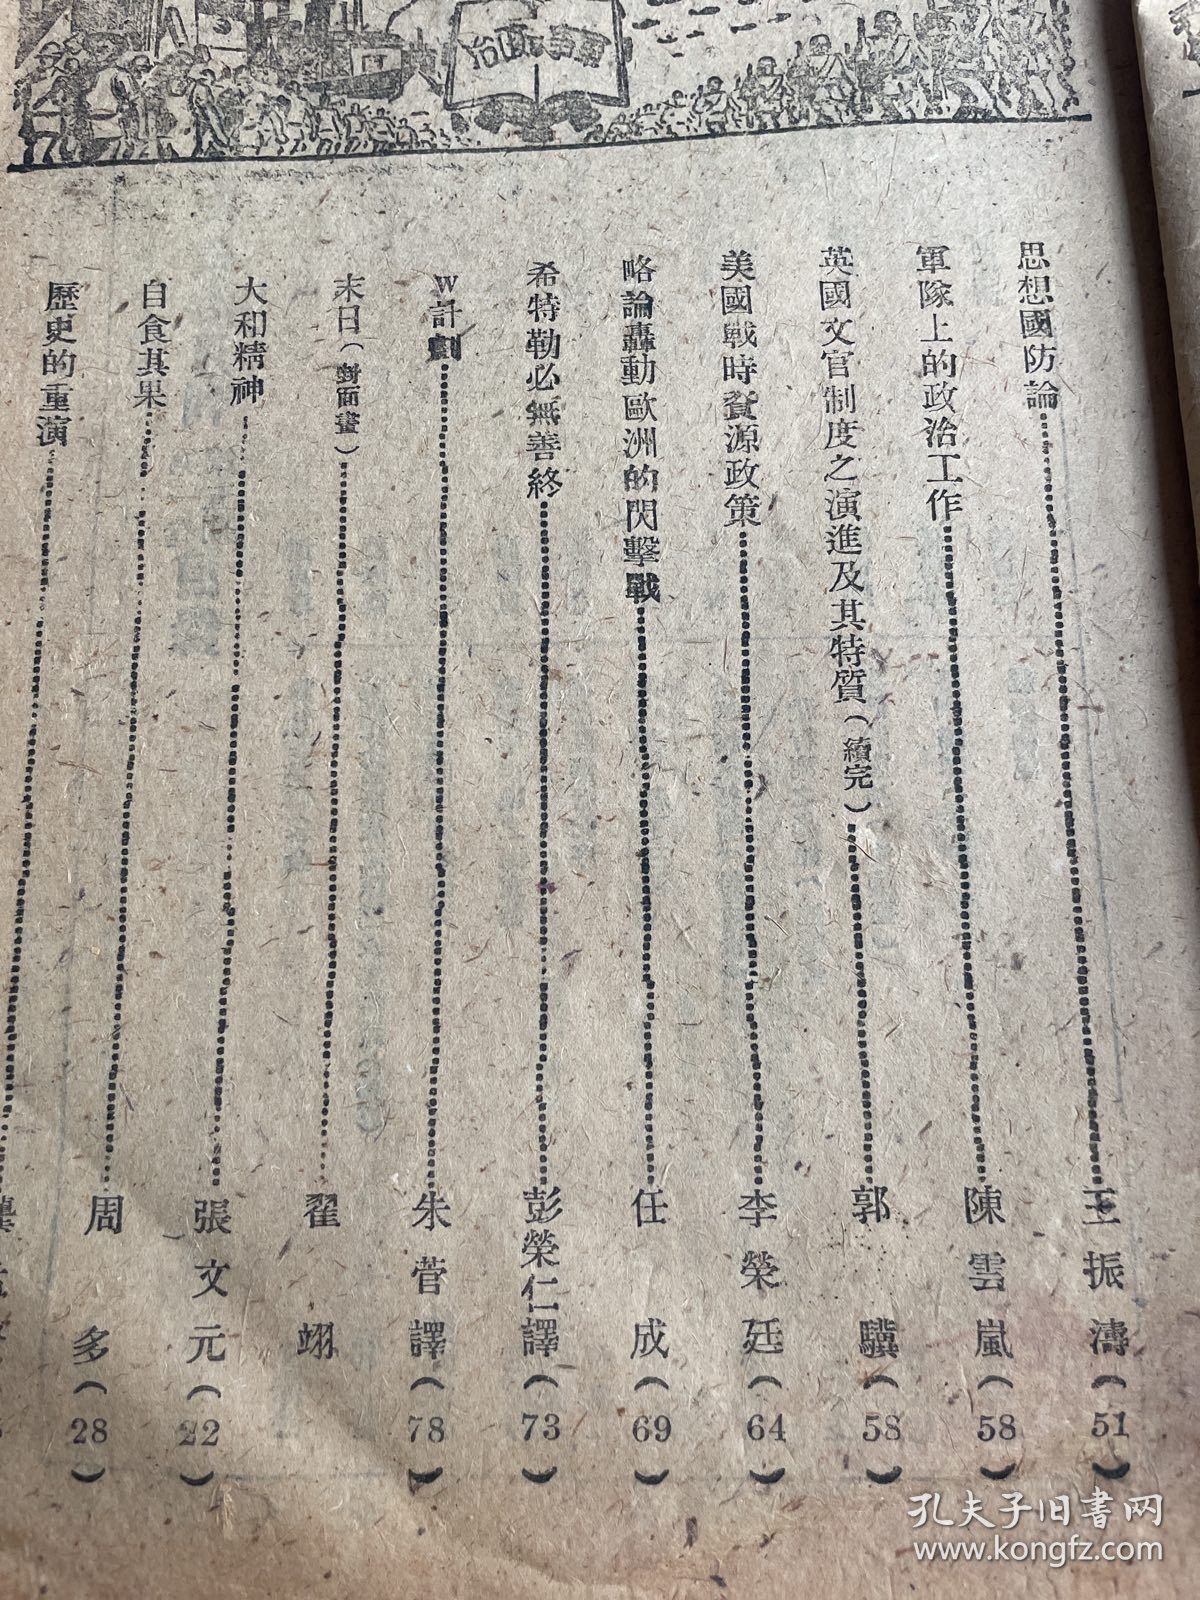 治政與事軍
思想國防論 王振濤(51)
軍隊上的政治工作 陳雲嵐(58)
英國文官制度之演進及其特質(續完) 郭驥(58)
美國戰時資源政策 李榮廷(64)
略論轟動歐洲的閃擊戰 任成(69)
希特勒必無善終 彭榮仁譯(73)
W計劃 朱菅譯(78)
末日(對面畫) 翟翊
大和精神 張文元(22)
自食其果 周多(28)
歷史的重演
孔夫子旧书网
www.kongfz.com